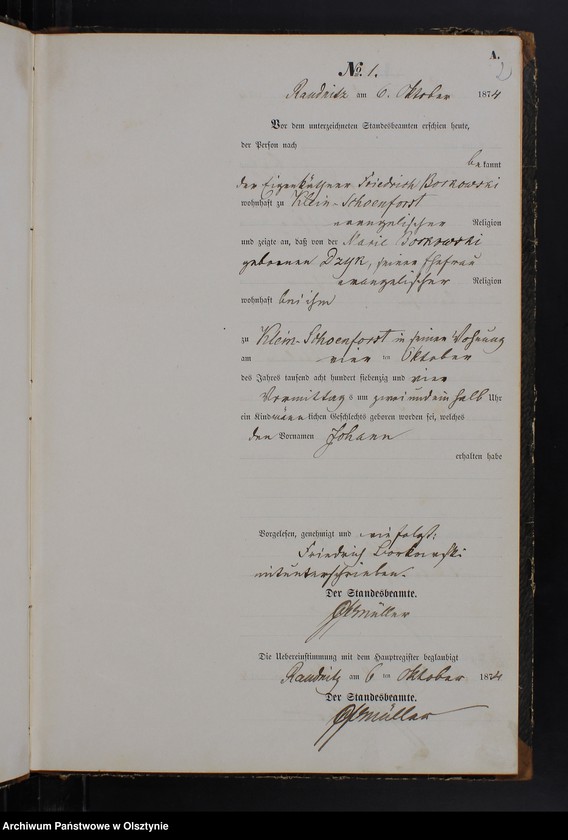 A.
2
No. 1.
Raudnitz am 6. Oktober 1874
Vor dem unterzeichneten Standesbeamten erschien heute,
der Person nach
bekannt
der Eigenkäthner Friedrich Borkowski
wohnhaft zu Klein-Schoenforst
evangelischer Religion
und zeigte an, daß von der Marie Borkowski
geborenen Dzyk, seiner Ehefrau
evangelischer Religion
wohnhaft bei ihm
zu Klein-Schoenforst in seiner Wohnung
am vier ten Oktober
des Jahres tausend acht hundert siebenzig und vier
Vormittags um zwei und ein halb Uhr
ein Kind männlichen Geschlechts geboren worden sei, welches
den Vornamen Johann
erhalten habe
Vorgelesen, genehmigt und wie folgt:
Friedrich Borkowski
mitunterschrieben.
Der Standesbeamte.
Müller
Die Uebereinstimmung mit dem Hauptregister beglaubigt
Raudnitz am 6 ten Oktober 1874
Der Standesbeamte.
Müller
Archiwum Państwowe w Olsztynie